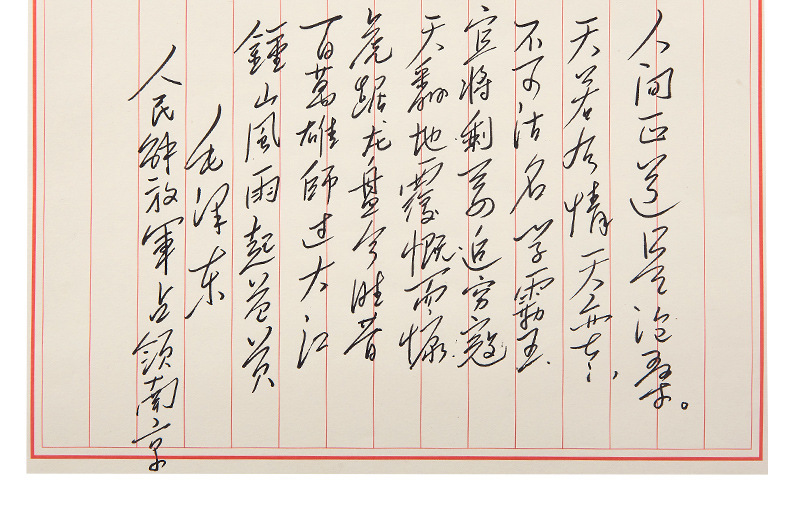 人民解放軍占領南京
毛泽东
鍾山風雨起苍黄
百萬雄師过大江
虎踞龙盘今胜昔
天翻地覆慨而慷
宜将剩勇追穷寇
不可沽名学霸王
天若有情天亦老、
人间正道是沧桑。